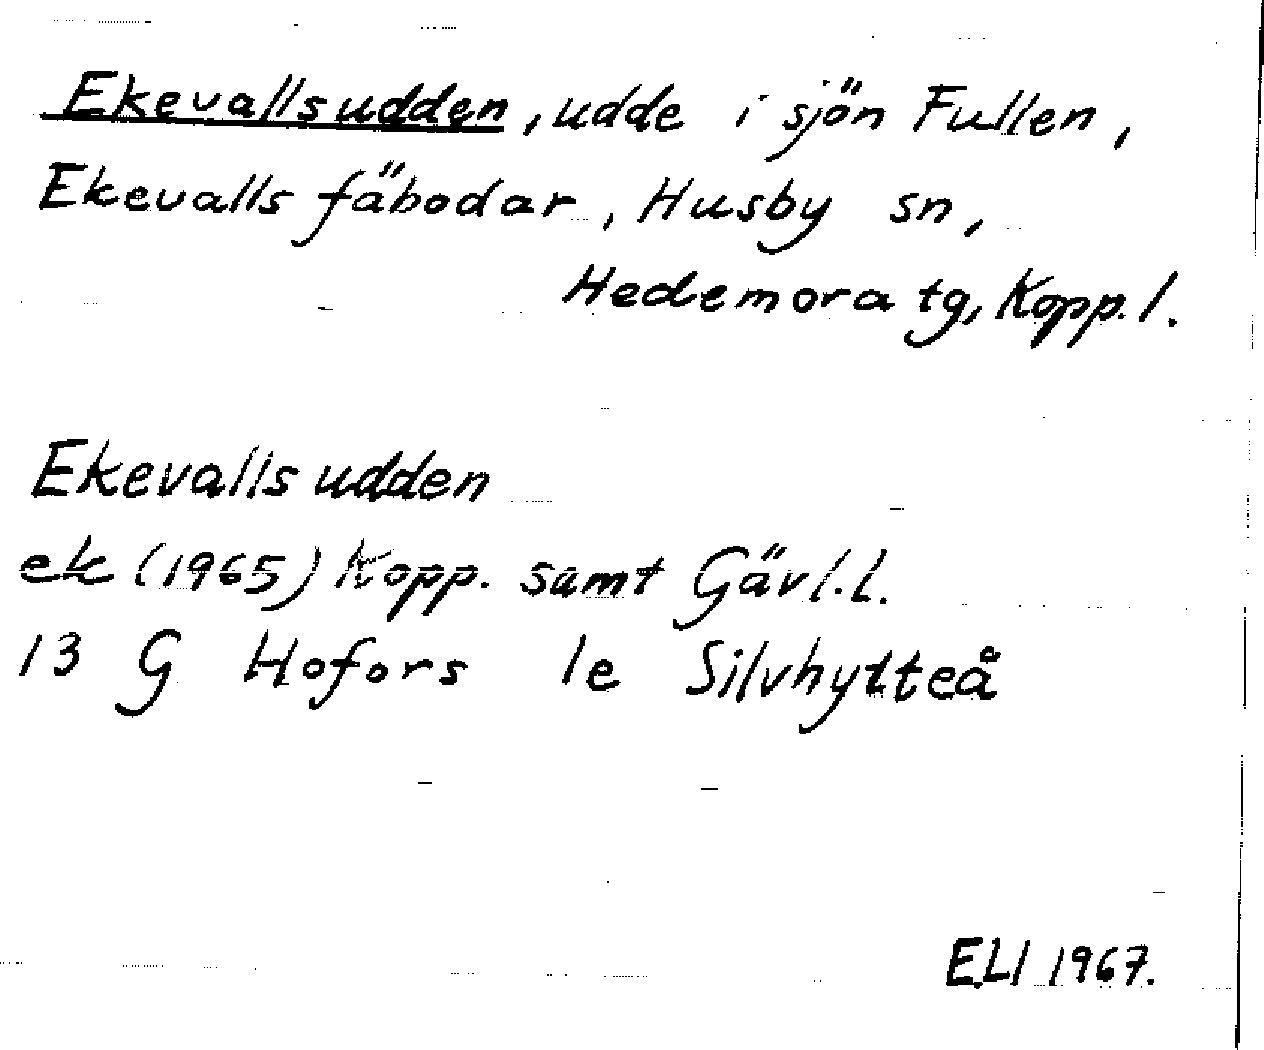 Ekevallsudden, udde i sjön Fullen,
Ekevalls fäbodar, Husby sn,
Hedemora tg, Kopp. l.
Ekevallsudden
ek (1965) Kopp. samt Gävl. l.
13 G Hofors 1e Silvhytteå
ELI 1967.